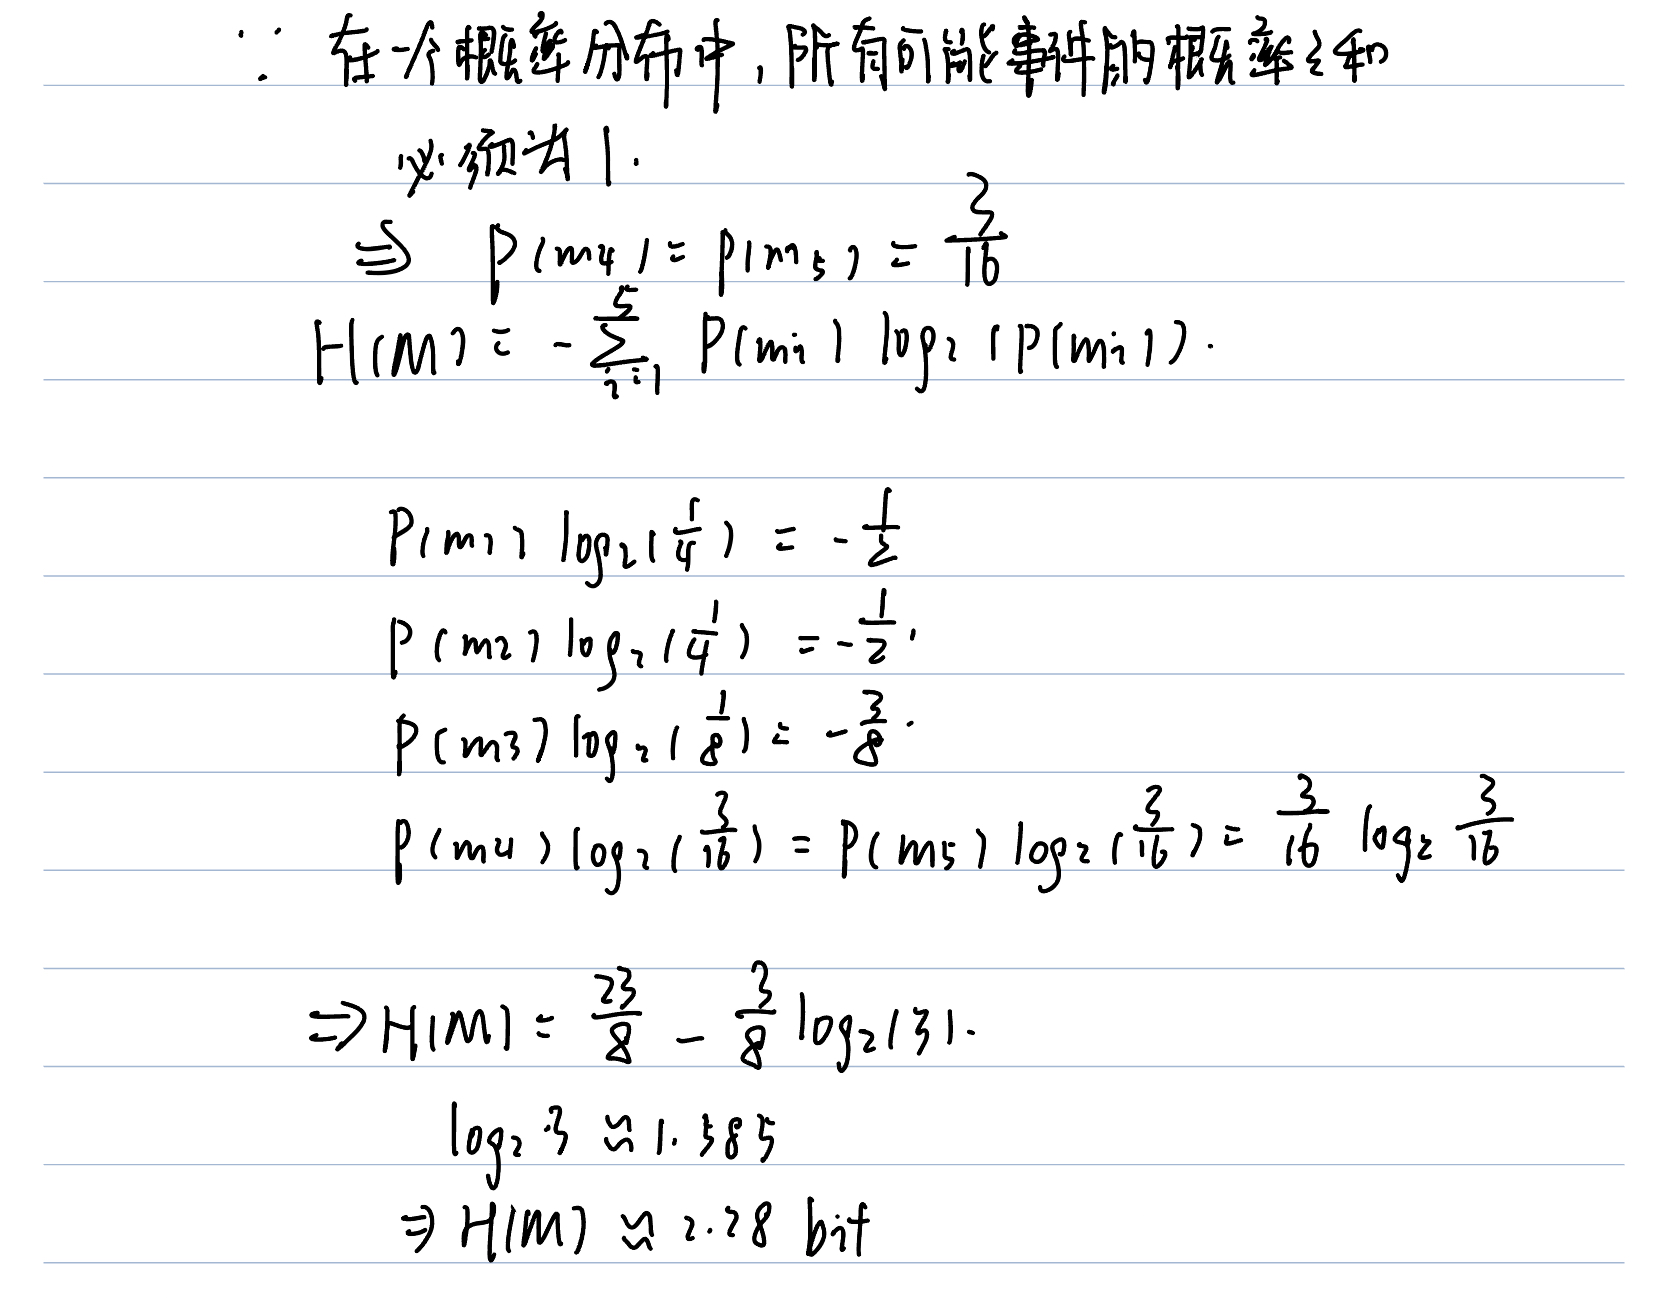 ∵ 在一个概率分布中，所有可能事件的概率之和
必须为1.
⇒ P(m4) = P(m5) = 3/16
H(M) = -∑_{i=1}^{5} P(mi) log₂(P(mi)).
P(m1) log₂(1/4) = -1/2
P(m2) log₂(1/4) = -1/2.
P(m3) log₂(1/8) = -3/8.
P(m4) log₂(3/16) = P(m5) log₂(3/16) = 3/16 log₂ 3/16
⇒ H(M) = 23/8 - 3/8 log₂(3).
log₂3 ≈ 1.585
⇒ H(M) ≈ 2.28 bit